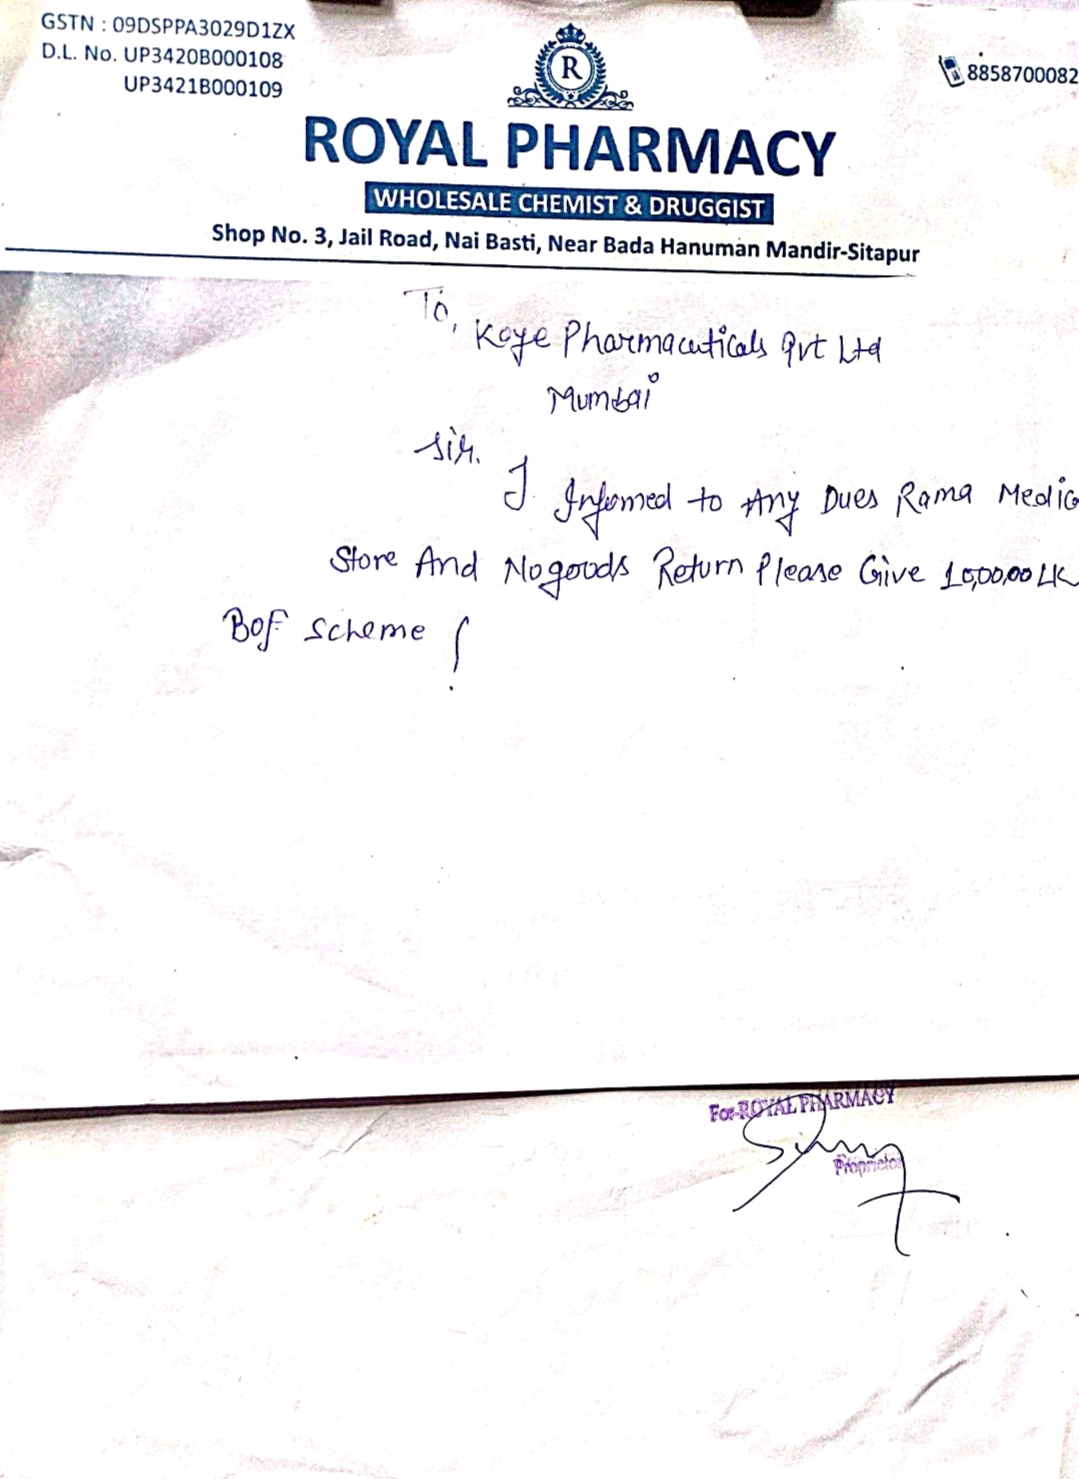 GSTN : 09DSPPA3029D1ZX
D.L. No. UP3420B000108
UP3421B000109
8858700082
R
ROYAL PHARMACY
WHOLESALE CHEMIST & DRUGGIST
Shop No. 3, Jail Road, Nai Basti, Near Bada Hanuman Mandir-Sitapur
To,
Koye Pharmaceuticals Pvt Ltd
Mumbai
Sir.
I Informed to Any Dues Rama Medic
Store And No goods Return Please Give 10,00,00 LK
Scheme
For-ROYAL PHARMACY
Proprietor